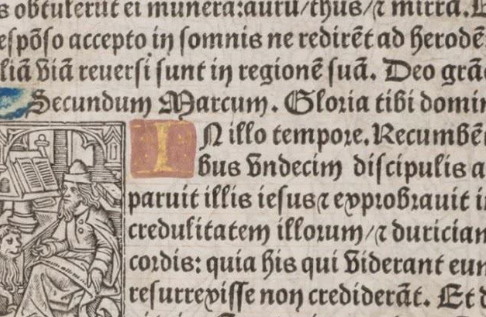 s obtulerut ei munera: auru/ thus/ ⁊ mirra. E
espõso accepto in somnis ne redirẽt ad herodẽ
liã viã reuersi sunt in regionẽ suã. Deo grã
Secundum Marcum. Gloria tibi domin
IN illo tempore. Recumbẽ
bus vndecim discipulis a
paruit illis iesus ⁊ exprobrauit i
credulitatem illorum/ ⁊ duriciam
cordis: quia his qui viderant eun
resurrexisse non crediderãt. Et d